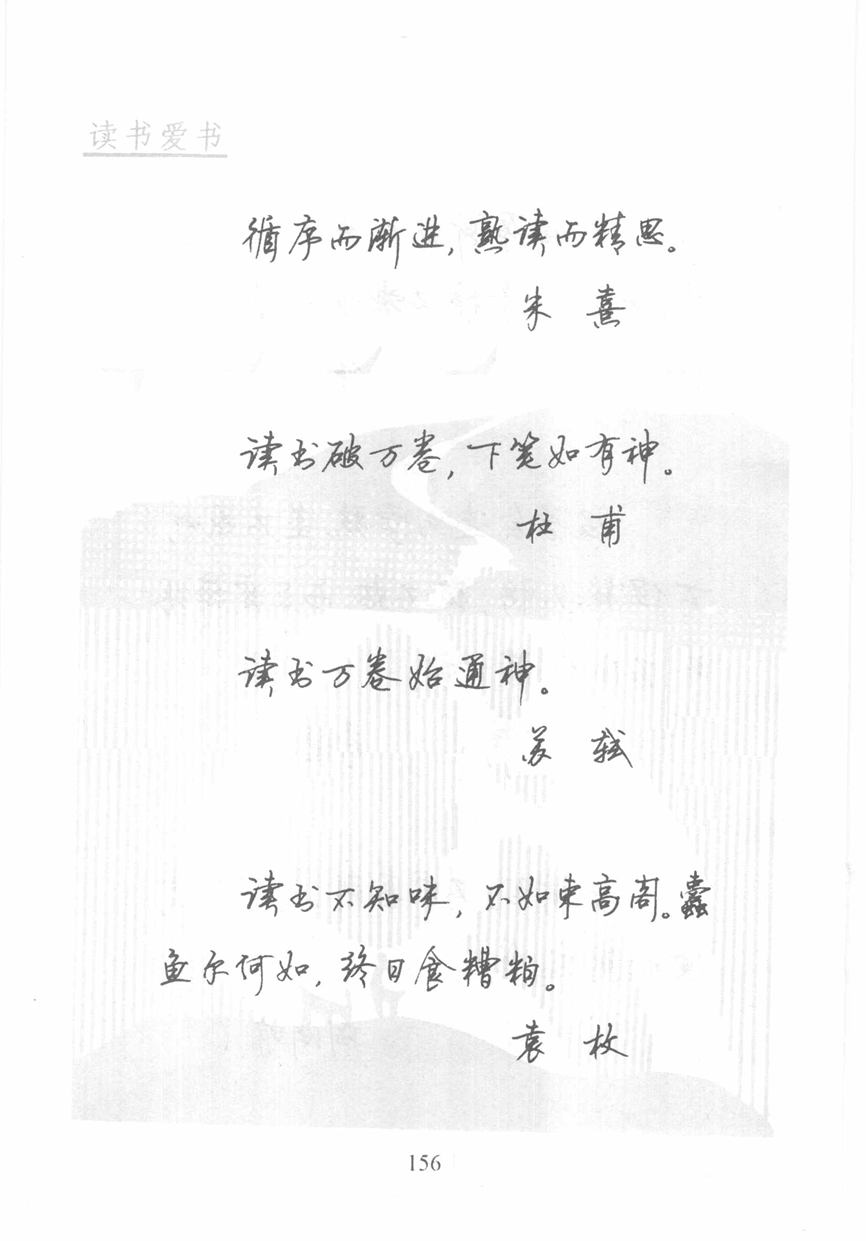 读书爱书
循序而渐进，熟读而精思。
朱 熹
读书破万卷，下笔如有神。
杜 甫
读书万卷始通神。
苏 轼
读书不知味，不如束高阁。蠹
鱼尔何如，终日食糟粕。
袁 枚
156